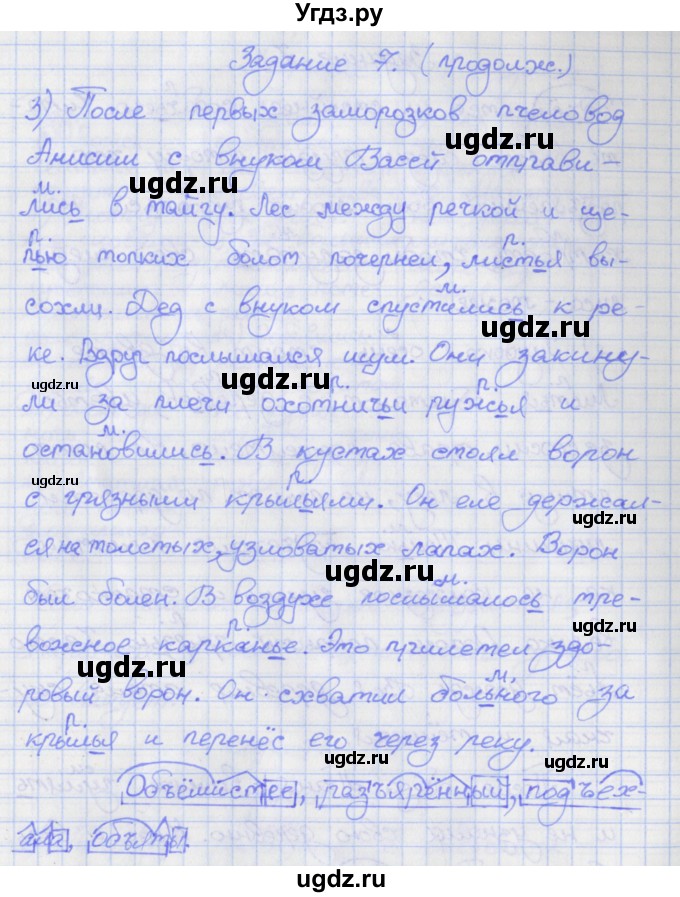 Угдз.ру
Задание 7. (продолж.)
3) После первых заморозков пчеловод
Анисим с внуком Васей отправи-
м.
лись в тайгу. Лес между речкой и це-
р. р.
пью топких болот почернел, листья вы-
м.
сохли. Дед с внуком спустились к ре-
ке. Вдруг послышался шум. Они закину-
р. р.
ли за плечи охотничьи ружья и
м.
остановились. В кустах стоял ворон
р.
с грязными крыльями. Он еле держал-
ся на толстых, узловатых лапах. Ворон
м.
был болен. В воздухе послышалось тре-
р.
вожное карканье. Это прилетел здо-
м.
ровый ворон. Он схватил больного за
р.
крылья и перенёс его через реку.
Объёмистее, разъярённый, подъех-
ала, объяты.
ugdz.ru
ugdz.ru
ugdz.ru
ugdz.ru
ugdz.ru
ugdz.ru
ugdz.ru
ugdz.ru
ugdz.ru
ugdz.ru
ugdz.ru
ugdz.ru
ugdz.ru
ugdz.ru